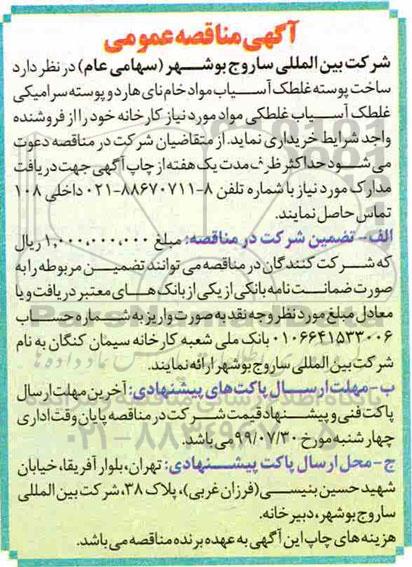 آگهی مناقصه عمومی
شرکت بین المللی ساروج بوشهر (سهامی عام) در نظر دارد
ساخت پوسته غلطک آسیاب مواد خام نای هارد و پوسته سرامیکی
غلطک آسیاب غلطکی مواد مورد نیاز کارخانه خود را از فروشنده
واجد شرایط خریداری نماید. از متقاضیان شرکت در مناقصه دعوت
می شود حداکثر ظرف مدت یک هفته از چاپ آگهی جهت دریافت
مدارک مورد نیاز با شماره تلفن ۸-۸۸۶۷۰۷۱۱-۰۲۱ داخلی ۱۰۸
تماس حاصل نمایند.
الف- تضمین شرکت در مناقصه: مبلغ ۱,۰۰۰,۰۰۰,۰۰۰ ریال
که شرکت کنندگان در مناقصه می توانند تضمین مربوطه را به
صورت ضمانت نامه بانکی از یکی از بانک های معتبر دریافت و یا
معادل مبلغ مورد نظر وجه نقد به صورت واریز به شماره حساب
۰۱۰۶۶۴۱۵۳۳۰۰۶ بانک ملی شعبه کارخانه سیمان کنگان به نام
شرکت بین المللی ساروج بوشهر ارائه نمایند.
ب- مهلت ارسال پاکت های پیشنهادی: آخرین مهلت ارسال
پاکت فنی و پیشنهاد قیمت شرکت در مناقصه پایان وقت اداری
چهارشنبه مورخ ۹۹/۰۷/۳۰ می باشد.
ج- محل ارسال پاکت پیشنهادی: تهران، بلوار آفریقا، خیابان
شهید حسین بنیسی (فرزان غربی)، پلاک ۳۸، شرکت بین المللی
ساروج بوشهر، دبیرخانه.
هزینه های چاپ این آگهی به عهده برنده مناقصه می باشد.